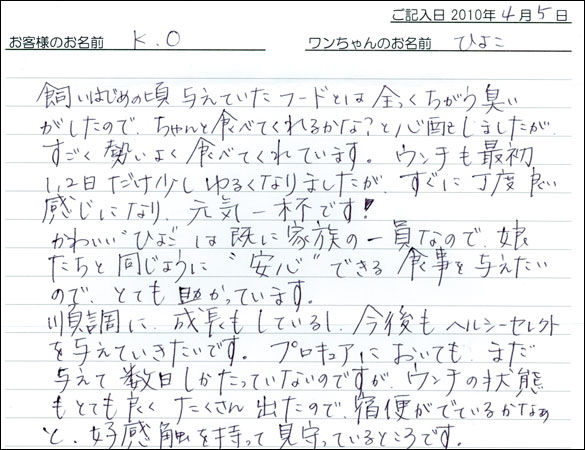 ご記入日 2010年 4月 5日
お客様のお名前 K.O ワンちゃんのお名前 ひよこ
飼いはじめの頃 与えていたフードとは 全っくちがう臭い
がしたので、ちゃんと食べてくれるかな?と心配しましたが
すごく勢いよく食べてくれています。ウンチも最初
1,2日だけ少しゆるくなりましたが、すぐに丁度良い
感じになり、元気一杯です!
かわいい"ひよこ"は既に家族の一員なので、娘
たちと同じように"安心"できる食事を与えたい
ので、とても助かっています。
順調に、成長もしているし、今後もヘルシーセレクト
を与えていきたいです。プロキュアにおいても、まだ
与えて数日しかたっていないのですが、ウンチの状態
もとても良く たくさん出たので、宿便がでているかなぁ
と、好感触を持って見守っているところです。